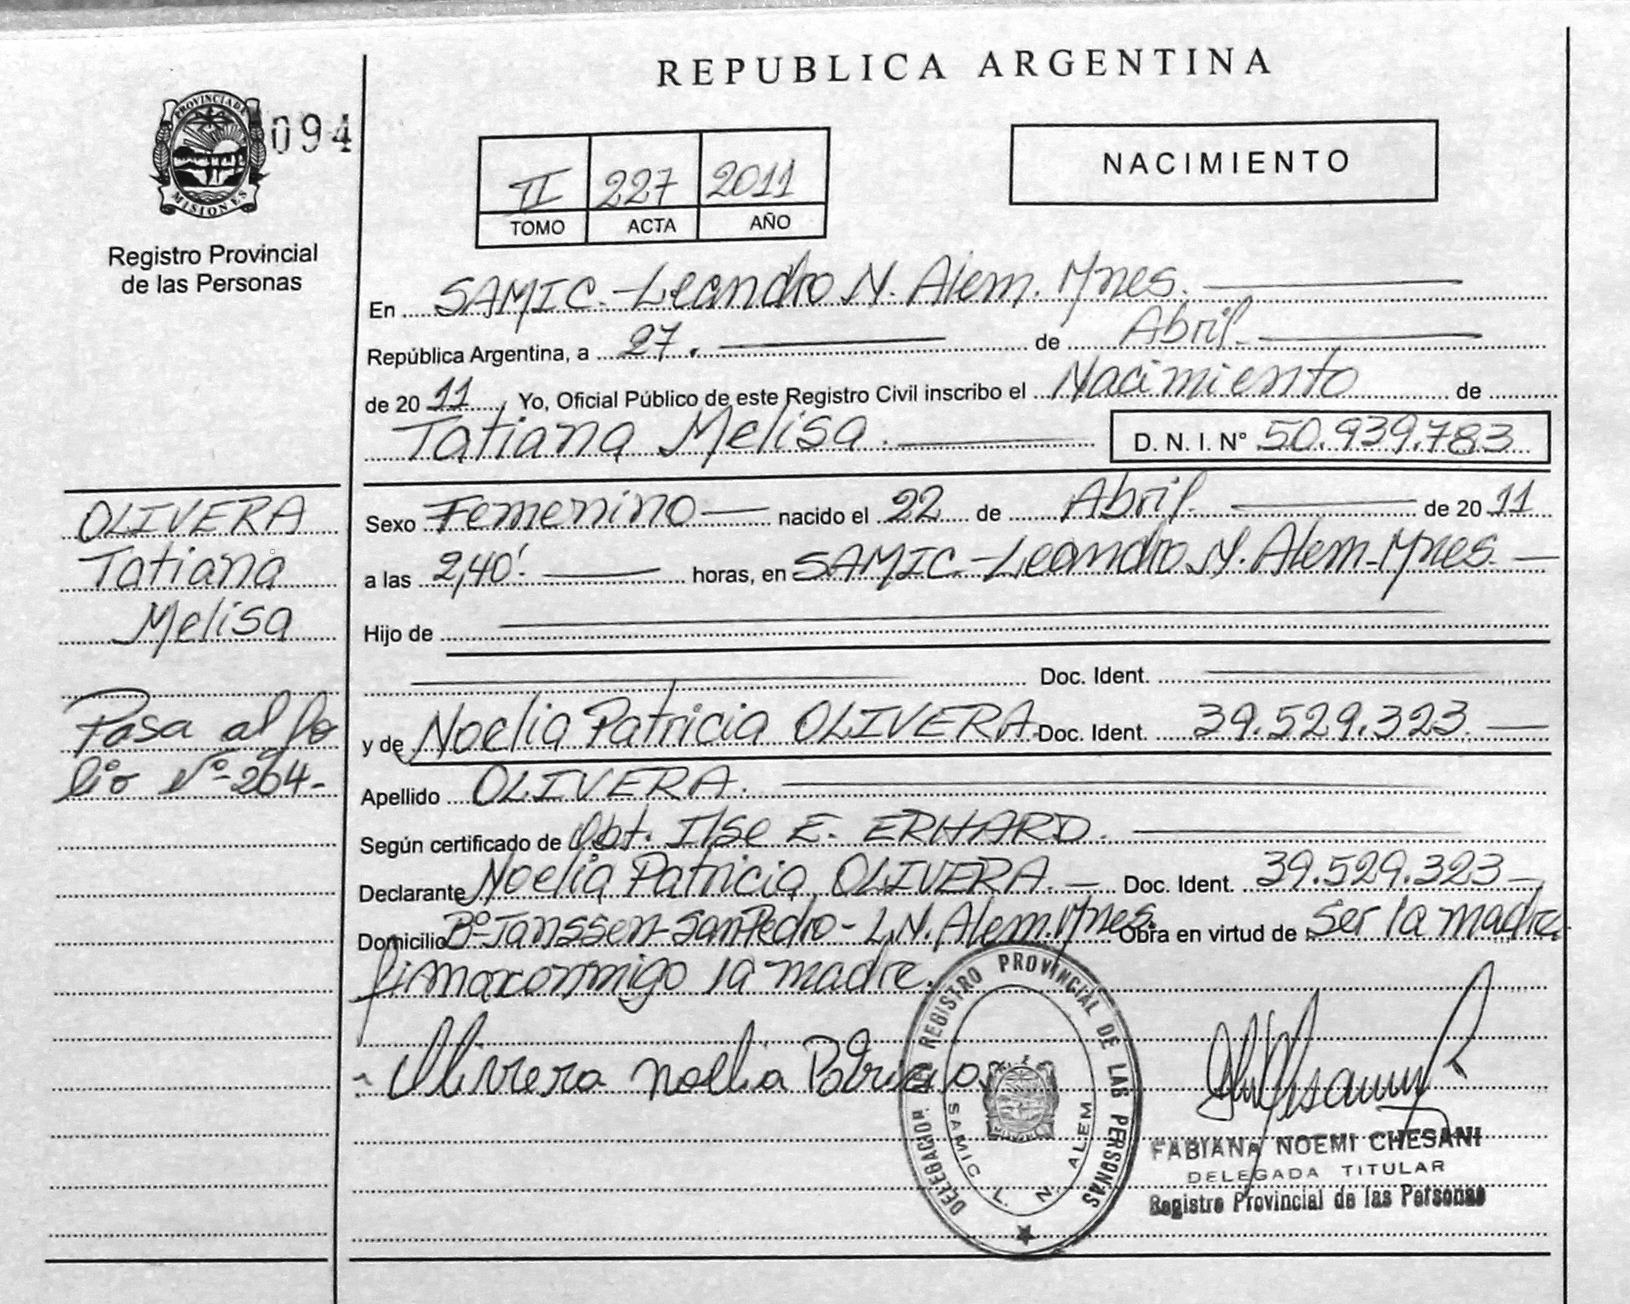 REPUBLICA ARGENTINA
PROVINCIA DE
MISIONES
094
Registro Provincial
de las Personas
II 227 2011
TOMO ACTA AÑO
NACIMIENTO
En SAMIC.-Leandro N. Alem. Mnes.
República Argentina, a 27. de Abril.
de 2011 Yo, Oficial Público de este Registro Civil inscribo el Nacimiento de
Tatiana Melisa. D. N. I. Nº 50.939.783
OLIVERA
Tatiana
Melisa
Pasa al fo
lio Nº-204-
Sexo Femenino nacido el 22 de Abril. de 2011
a las 2,40' horas, en SAMIC.-Leandro N. Alem-Mnes.
Hijo de
Doc. Ident.
y de Noelia Patricia OLIVERA. Doc. Ident. 39.529.323.
Apellido OLIVERA.
Según certificado de Obt. Ilse E. ERHARD.
Declarante Noelia Patricia OLIVERA. Doc. Ident. 39.529.323
Domicilio Bº-Janssen-San Pedro- L.N. Alem. Mnes. Obra en virtud de Ser la madre.
firma conmigo la madre.
Olivera noelia Patricia
DELEGACION DEL REGISTRO PROVINCIAL DE LAS PERSONAS
SAMIC L. N. ALEM
FABIANA NOEMI CHESANI
DELEGADA TITULAR
Registro Provincial de las Personas